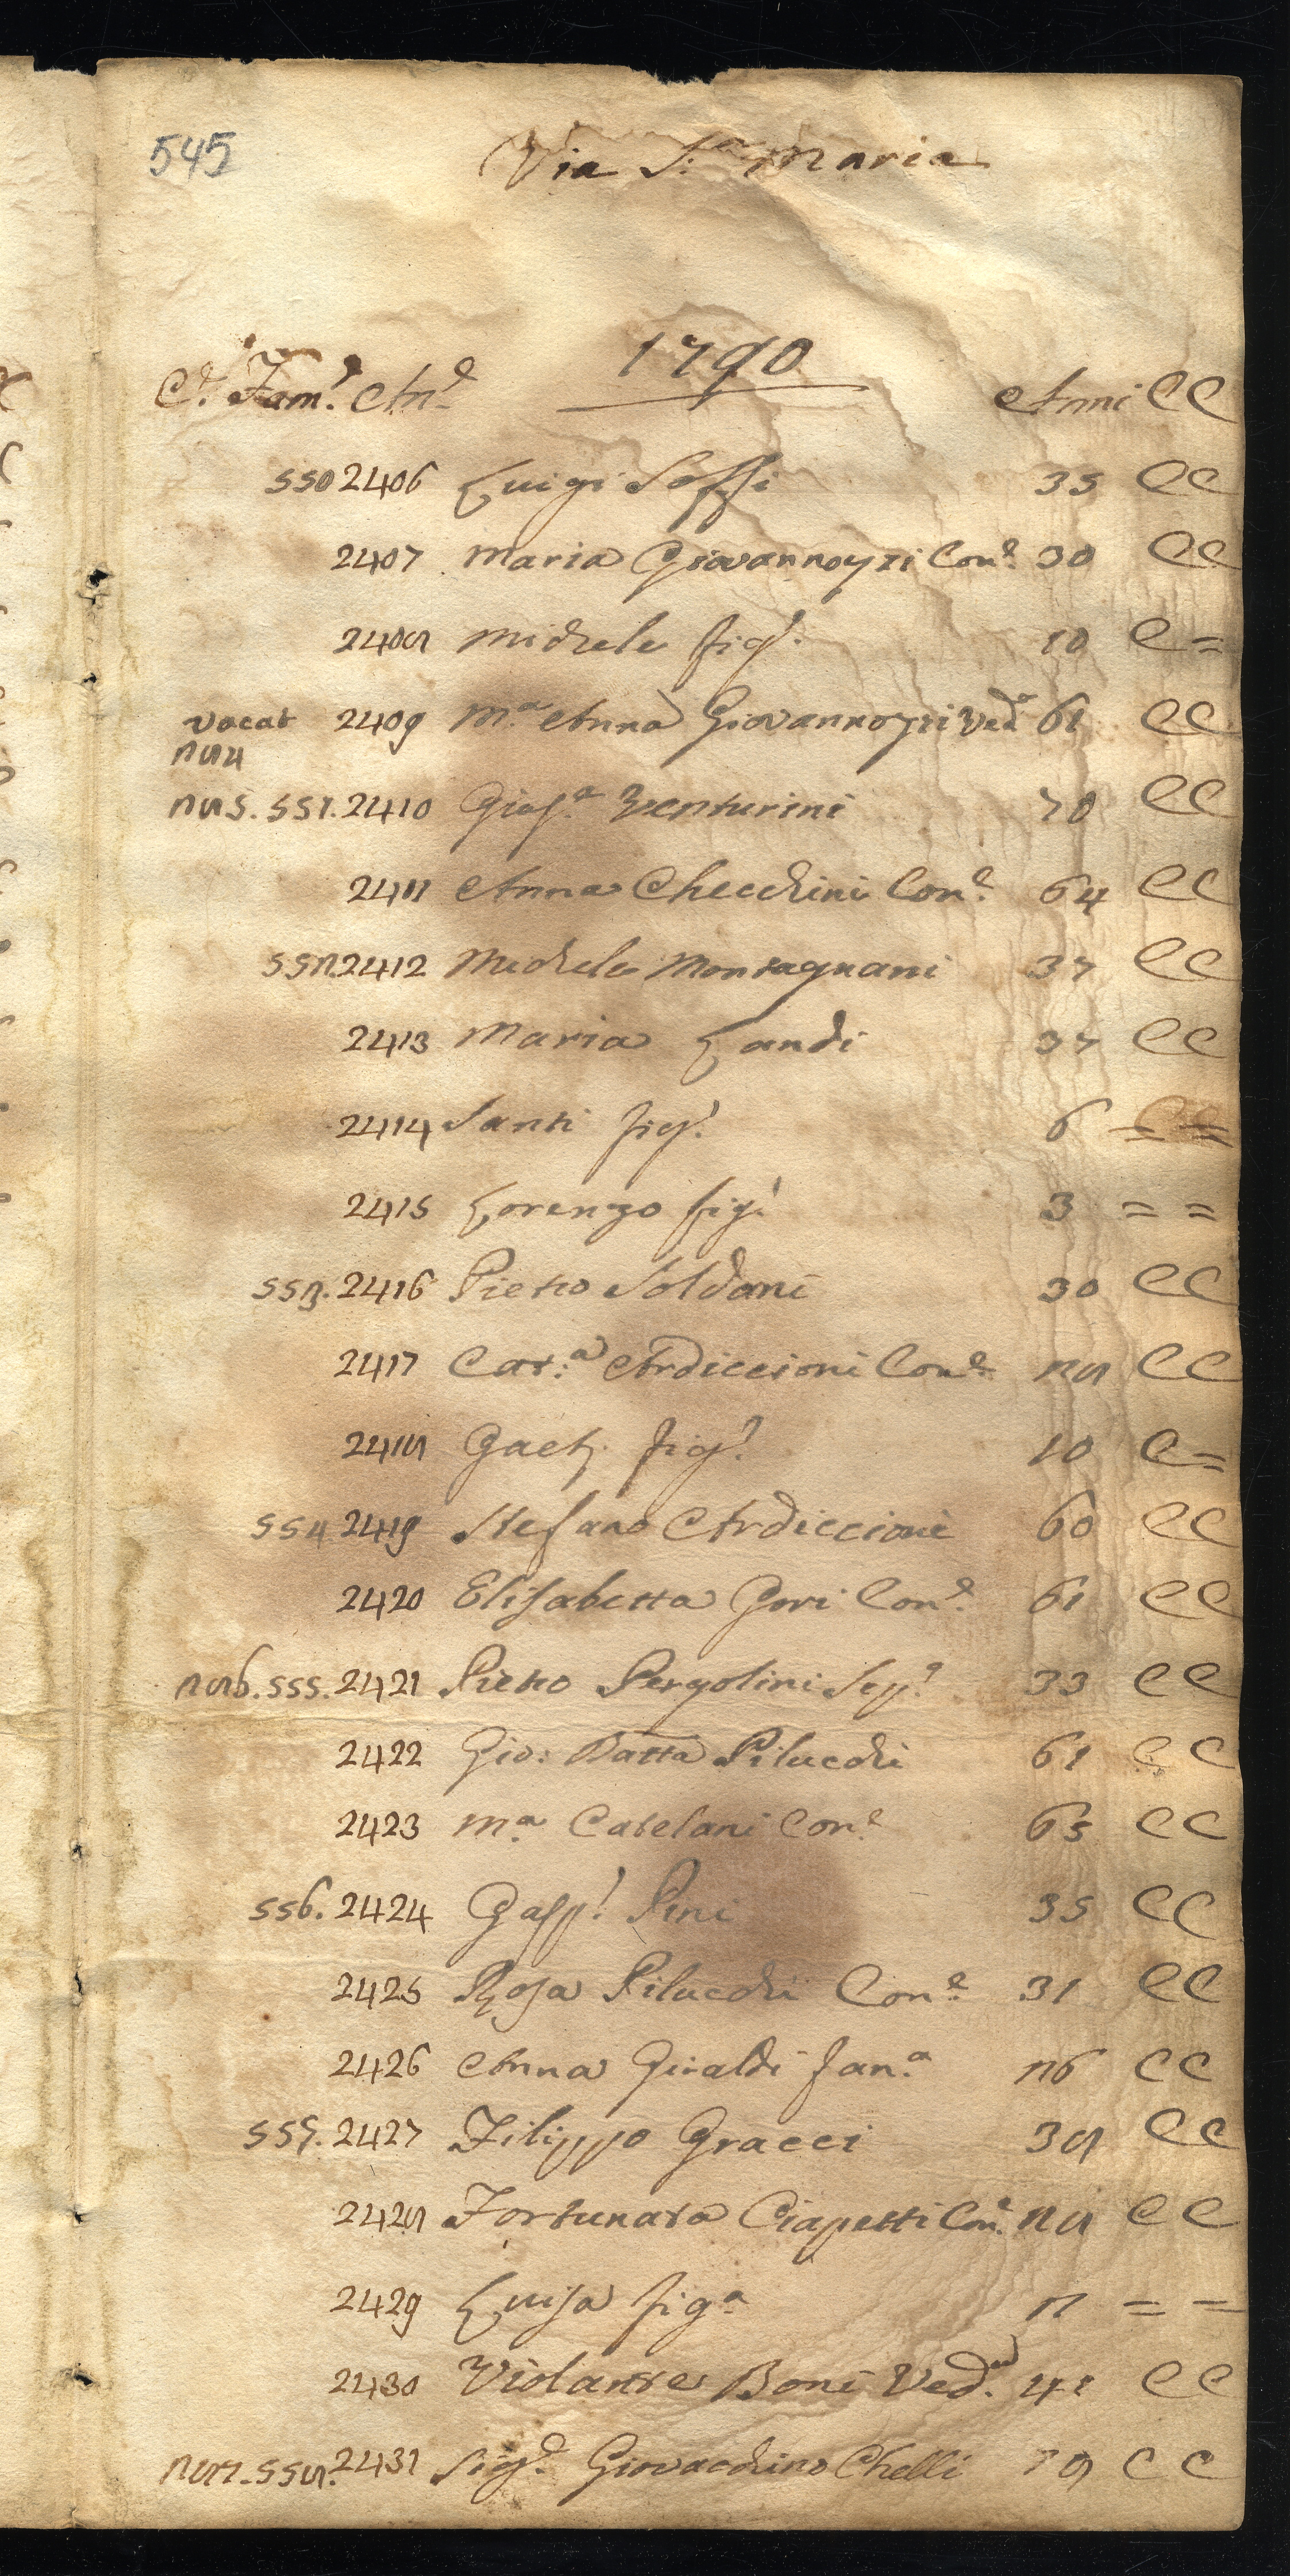 545
Via S.ª Maria
1790
C.e Fam.e An.e Anni CC
550 2406 Luigi Soffi 35 CC
2407 Maria Giovannozzi Con.e 30 CC
2408 Michele fig.o 10 C =
vacat 2409 M.ª Anna Giovannozzi Ved.ª 61 CC
284
285. 551. 2410 Gius.e Venturini 70 CC
2411 Anna Checchini Con.e 64 CC
552 2412 Michele Montagnani 37 CC
2413 Maria Landi 37 CC
2414 Santi fig.o 6 = =
2415 Lorenzo fig.o 3 = =
553. 2416 Pietro Soldani 30 CC
2417 Cat.ª Ardiccioni Con.e 28 CC
2418 Gaet.o fig.o 10 C =
554 2419 Stefano Ardiccioni 60 CC
2420 Elisabetta Gori Con.e 61 CC
286. 555. 2421 Pietro Pergolini Sep.o 33 CC
2422 Gio: Batta Pilucchi 61 CC
2423 M.ª Catelani Con.e 65 CC
556. 2424 Gasp.o Pini 35 CC
2425 Rosa Pilucchi Con.e 31 CC
2426 Anna Giraldi fan.ª 26 CC
557. 2427 Filippo Gracci 38 CC
2428 Fortunata Ciapetti Con.e 28 CC
2429 Luisa fig.ª 2 = =
2430 Violante Boni Ved.ª 41 CC
287. 558. 2431 Sig.e Giovacchino Chelli CC